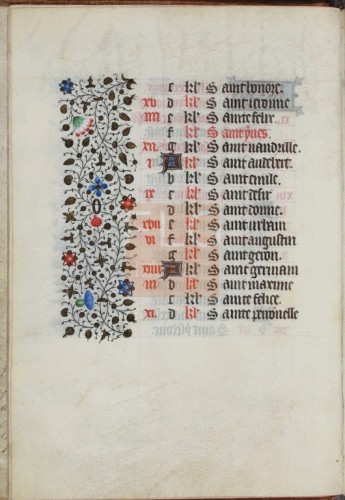 c kl' Saint honore.
xv d kl' Saint ieronne
iiii e kl' Sainte felix
f kl' Saint yues.
xii g kl' Saint uandrille.
i A kl' Saint audebert.
b kl' Saint emille.
ix c kl' Saint desir
d kl' Saint donne.
xvii e kl' Saint urbain
vi f kl' Saint augustin
g kl' Saint geron.
xiiii A kl' Saint germain
iii b kl' Saint maxime
c kl' Sainte felice.
xi. d kl' Sainte peronelle